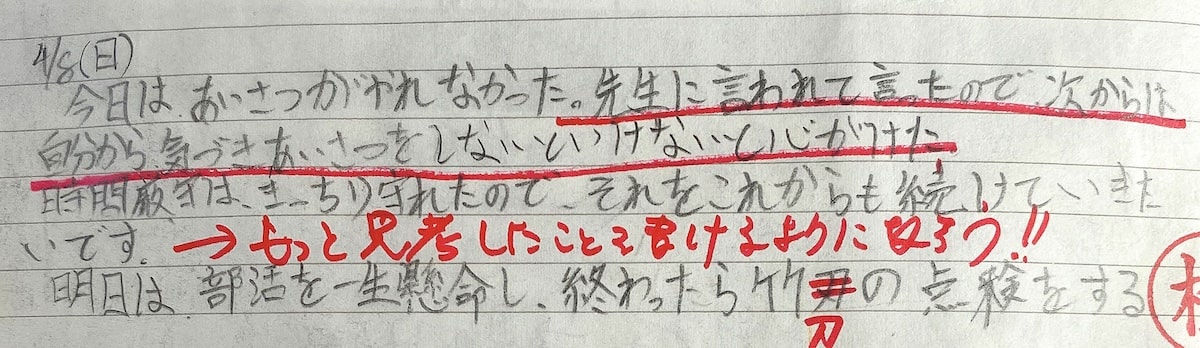 4/8(日)
今日は、あいさつがやれなかった。先生に言われて言ったので、次からは
自分から気づきあいさつをしないといけないと心がけた
時間厳守は、きっちり守れたので、それをこれからも続けていきた
いです。→もっと思考したことを書けるようになろう!!
明日は、部活を一生懸命し、終わったら竹の点検をする
刀